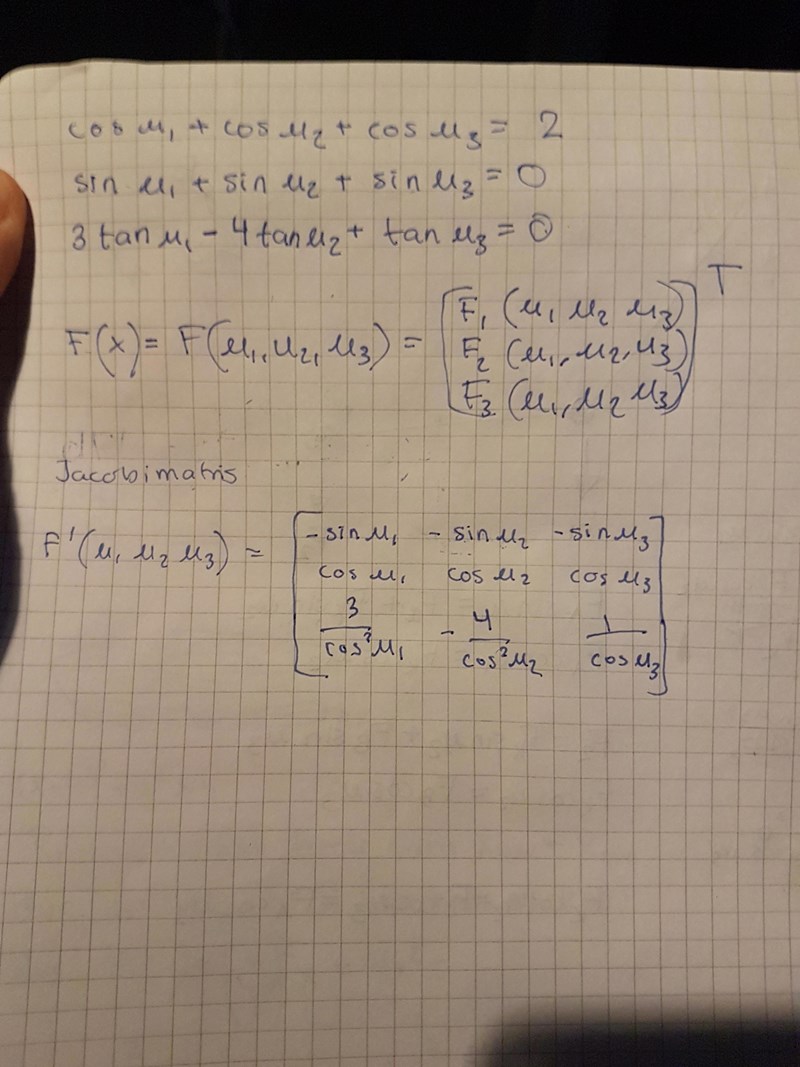 cos u₁ + cos u₂ + cos u₃ = 2
sin u₁ + sin u₂ + sin u₃ = 0
3 tan u₁ - 4 tan u₂ + tan u₃ = 0
F(x) = F(u₁, u₂, u₃) = [F₁ (u₁ u₂ u₃)
F₂ (u₁, u₂, u₃)
F₃ (u₁, u₂ u₃)]ᵀ
Jacobimatris
F'(u₁ u₂ u₃) = [-sin u₁ - sin u₂ - sin u₃
cos u₁ cos u₂ cos u₃
3/cos² u₁ - 4/cos² u₂ 1/cos u₃]